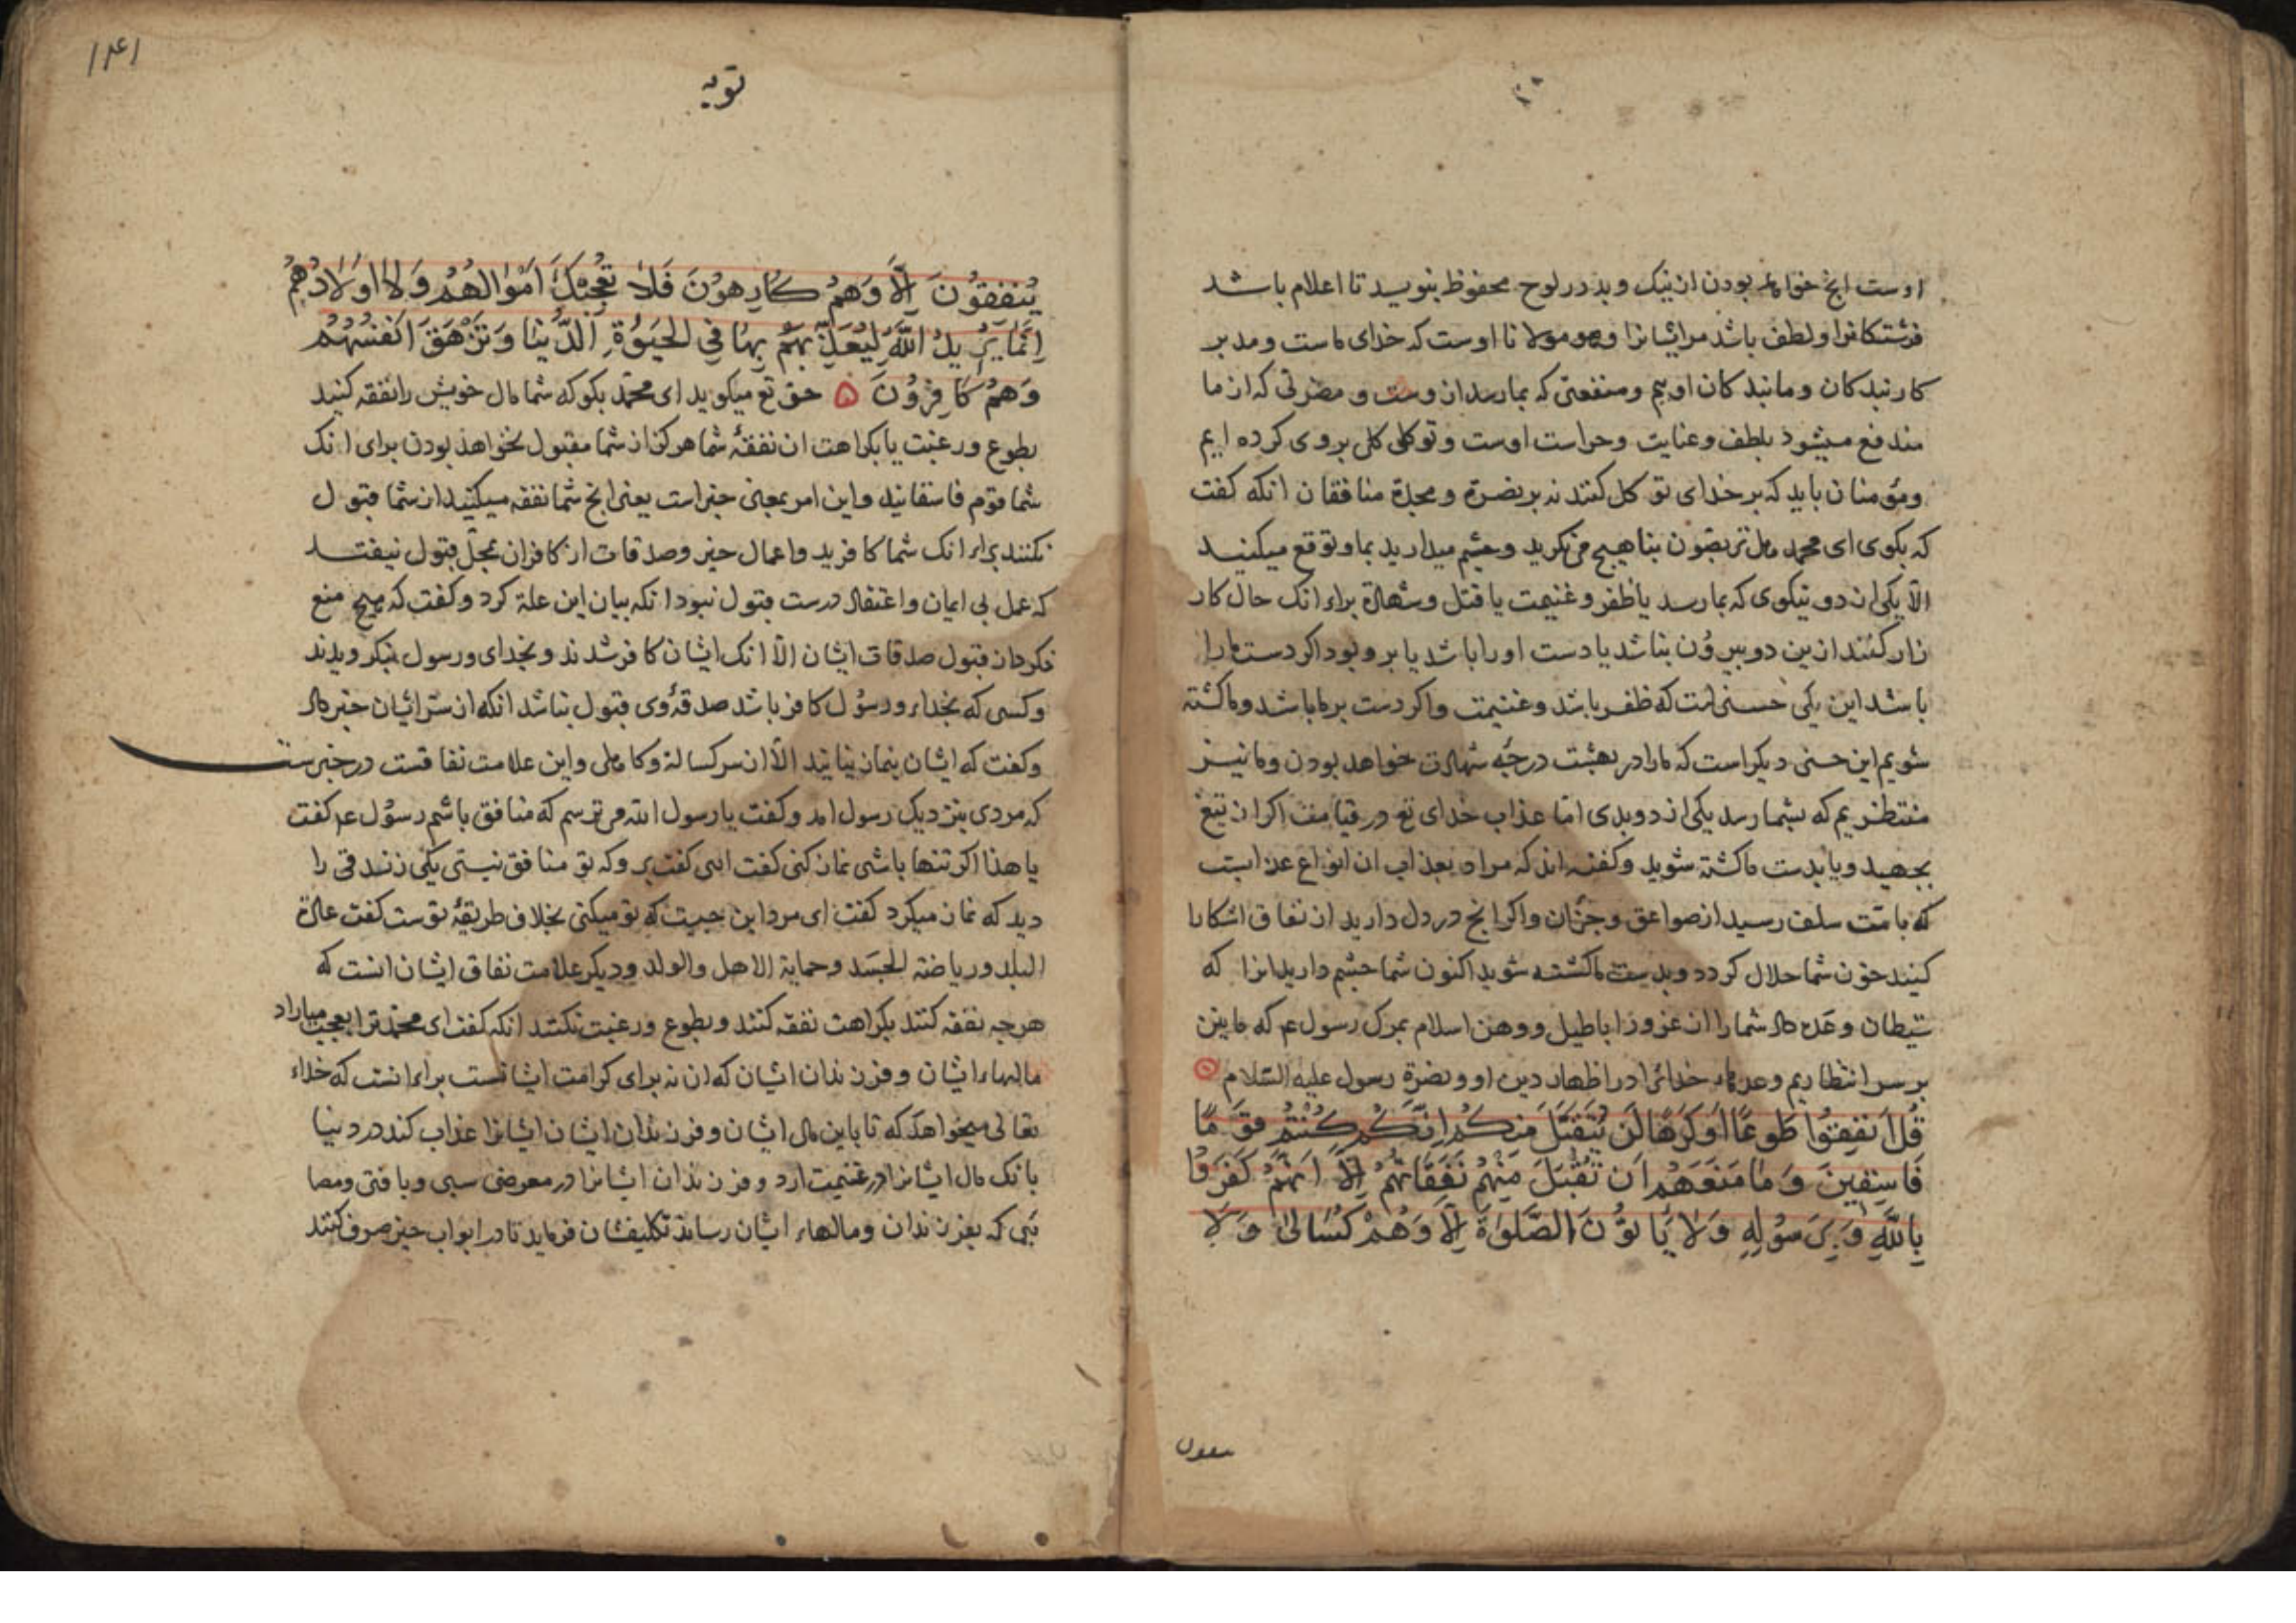 اوست انچ خواهد بودن از نیک و بد در لوح محفوظ بنویسد تا اعلام باشد
فرشتکانرا و لطف باشد مر ایشانرا و هو مولانا اوست که خدای ماست و مدبر
کار بندکان و ما بندکان اوییم و منفعتی که بما رسد از وست و مضرتی که از ما
مندفع میشود بلطف و عنایت و حراست اوست و توکلی کلی بر وی کرده ایم
و مؤمنان باید که بر خدای توکل کنند نه بر نصرة و محبة منافقان انکه کفت
که بکوی ای محمد هل تربصون بنا هیچ می نکرید و چشم میدارید بما و توقع میکنید
الا یکی از دو نیکوی که بما رسد یا ظفر و غنیمت یا قتل و شهادة برای انک حال کار
زار کنند ازین دو بیرون نباشد یا دست او را باشد یا برو بود اکر دست ما را
باشد این یکی حسنی است که ظفر باشد و غنیمت و اکر دست بر ما باشد و ما کشته
شویم این حسنی دیکر است که ما را در بهشت درجه شهادت خواهد بودن و ما نیز
منتظریم که بشما رسد یکی از دو بدی اما عذاب خدای تع در قیامت اکر از تیغ
بجهید و یا بدست ما کشته شوید و کفته اند که مراد بعذاب ان انواع عذابست
که بامت سلف رسید از صواعق و جز ان و اکر انچ در دل دارید از نفاق اشکارا
کنید خون شما حلال کردد و بدست ما کشته شوید اکنون شما چشم دارید انرا که
شیطان وعده داد شما را از غرور اباطیل و وهن اسلام بمرک رسول ع م که ما نیز
بر سر انتظاریم وعدهاء خدائرا در اظهار دین او و نصرة رسول علیه السلام
قُل اَنفِقُوا طَوعًا اَو کَرهًا لَن یُتَقَبَّلَ مِنکُم اِنَّکُم کُنتُم قَومًا
فَاسِقِینَ وَمَا مَنَعَهُم اَن تُقبَلَ مِنهُم نَفَقَاتُهُم اِلَّا اَنَّهُم کَفَرُوا
بِاللّٰهِ وَبِرَسُولِهِ وَلَا یَاتُونَ الصَّلٰوةَ اِلَّا وَهُم کُسَالٰی وَلَا
ینفقون
۱۴۱
توبه
یُنفِقُونَ اِلَّا وَهُم کَارِهُونَ فَلَا تُعجِبکَ اَموَالُهُم وَلَا اَولَادُهُم
اِنَّمَا یُرِیدُ اللّٰهُ لِیُعَذِّبَهُم بِهَا فِی الحَیٰوةِ الدُّنیَا وَتَزهَقَ اَنفُسُهُم
وَهُم کَافِرُونَ حق تع میکوید ای محمد بکو که شما مال خویش را نفقه کنید
بطوع و رغبت یا بکراهت ان نفقهٔ شما هرکز از شما مقبول نخواهد بودن برای انک
شما قوم فاسقانید و این امر بمعنی خبر است یعنی انچ شما نفقه میکنید از شما قبول
نکنند برای انک شما کافرید و اعمال خیر و صدقات از کافران بمحل قبول نیفتد
که عمل بی ایمان و اعتقاد درست قبول نبود انکه بیان این علة کرد و کفت که هیچ منع
نکرد از قبول صدقات ایشان الا انک ایشان کافر شدند و بخدای و رسول بنکرویدند
و کسی که بخدای و رسول کافر باشد صدقهٔ وی قبول نباشد انکه از سر ایشان خبر داد
و کفت که ایشان بنماز نیایند الا از سر کسالة و کاهلی و این علامت نفاقست در خبرست
که مردی بنزدیک رسول امد و کفت یا رسول الله می ترسم که منافق باشم رسول ع م کفت
یا هذا اکر تنها باشی نماز کنی کفت اری کفت برو که تو منافق نیستی یکی زندقی را
دید که نماز میکرد کفت ای مرد این چیست که تو میکنی بخلاف طریقهٔ توست کفت عادة
البلد و ریاضة الجسد و حمایة الاهل و الولد و دیکر علامت نفاق ایشان انست که
هرچه نفقه کنند بکراهت نفقه کنند و بطوع و رغبت نکنند انکه کفت ای محمد ترا بعجب میاراد
مالهاء ایشان و فرزندان ایشان که ان نه برای کرامت ایشانست برای انست که خدای
تعالی میخواهد که تا باین مال ایشان و فرزندان ایشان ایشانرا عذاب کند در دنیا
بانک مال ایشانرا در غنیمت ارد و فرزندان ایشانرا در معرض سبی و یا فتی و مصا
ئبی که بفرزندان و مالهاء ایشان رساند تکلیفشان فرماید تا در ابواب خیر صرف کنند